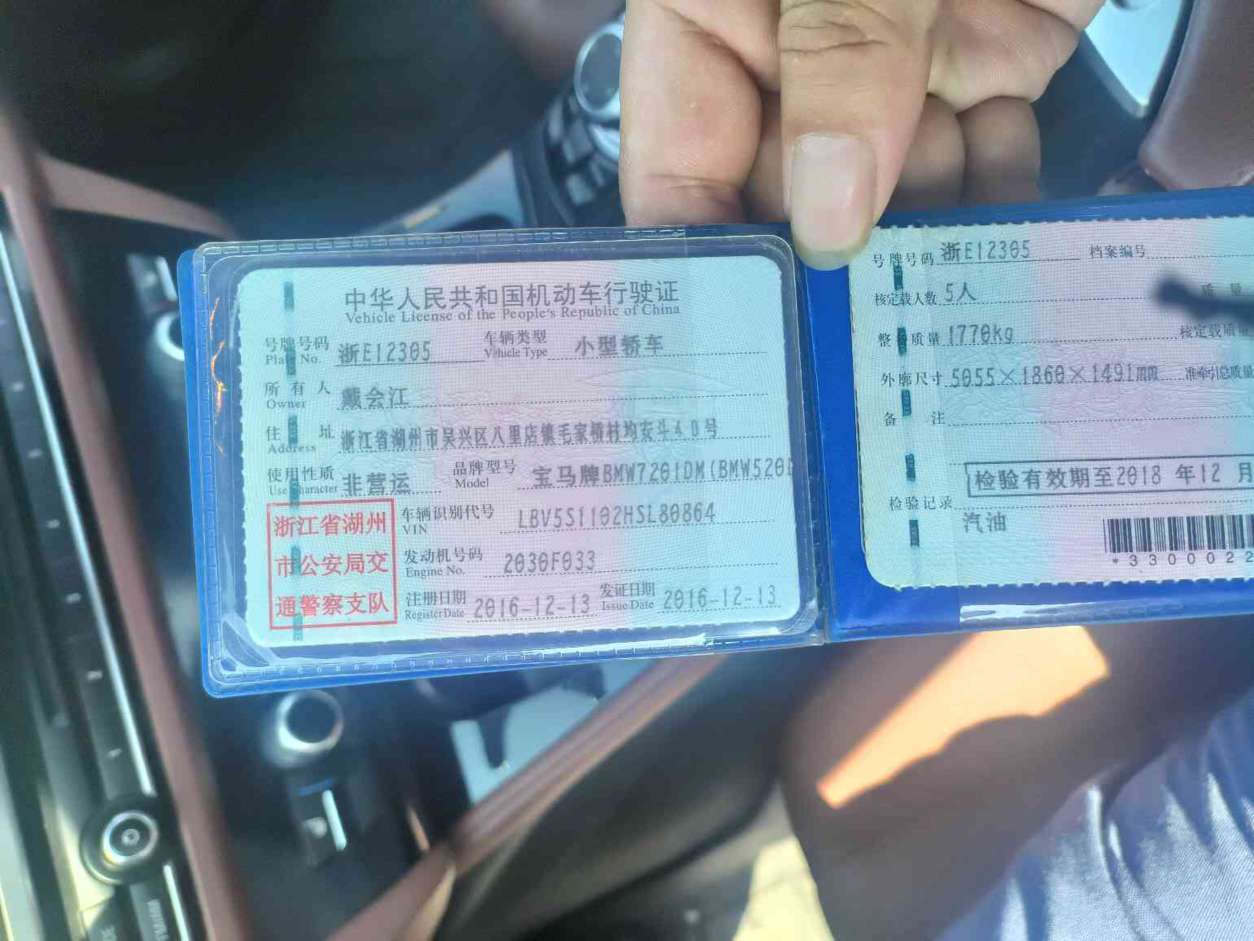 中华人民共和国机动车行驶证
Vehicle License of the People's Republic of China
号牌号码 浙E12305 车辆类型 小型轿车
Plate No. Vehicle Type
所有人 戴会江
Owner
住址 浙江省湖州市吴兴区八里店镇毛家横村均安斗40号
Address
使用性质 非营运 品牌型号 宝马牌BMW7201DM(BMW520
Use Character Model
浙江省湖州
市公安局交
通警察支队
车辆识别代号 LBV5S1102HSL80864
VIN
发动机号码 2030F033
Engine No.
注册日期 2016-12-13 发证日期 2016-12-13
Register Date Issue Date
号牌号码 浙E12305 档案编号
核定载人数 5人 质量
整备质量 1770kg 核定载质量
外廓尺寸 5055×1860×1491mm 准牵引总质量
备注
检验有效期至2018 年12 月
检验记录
汽油
*3300022